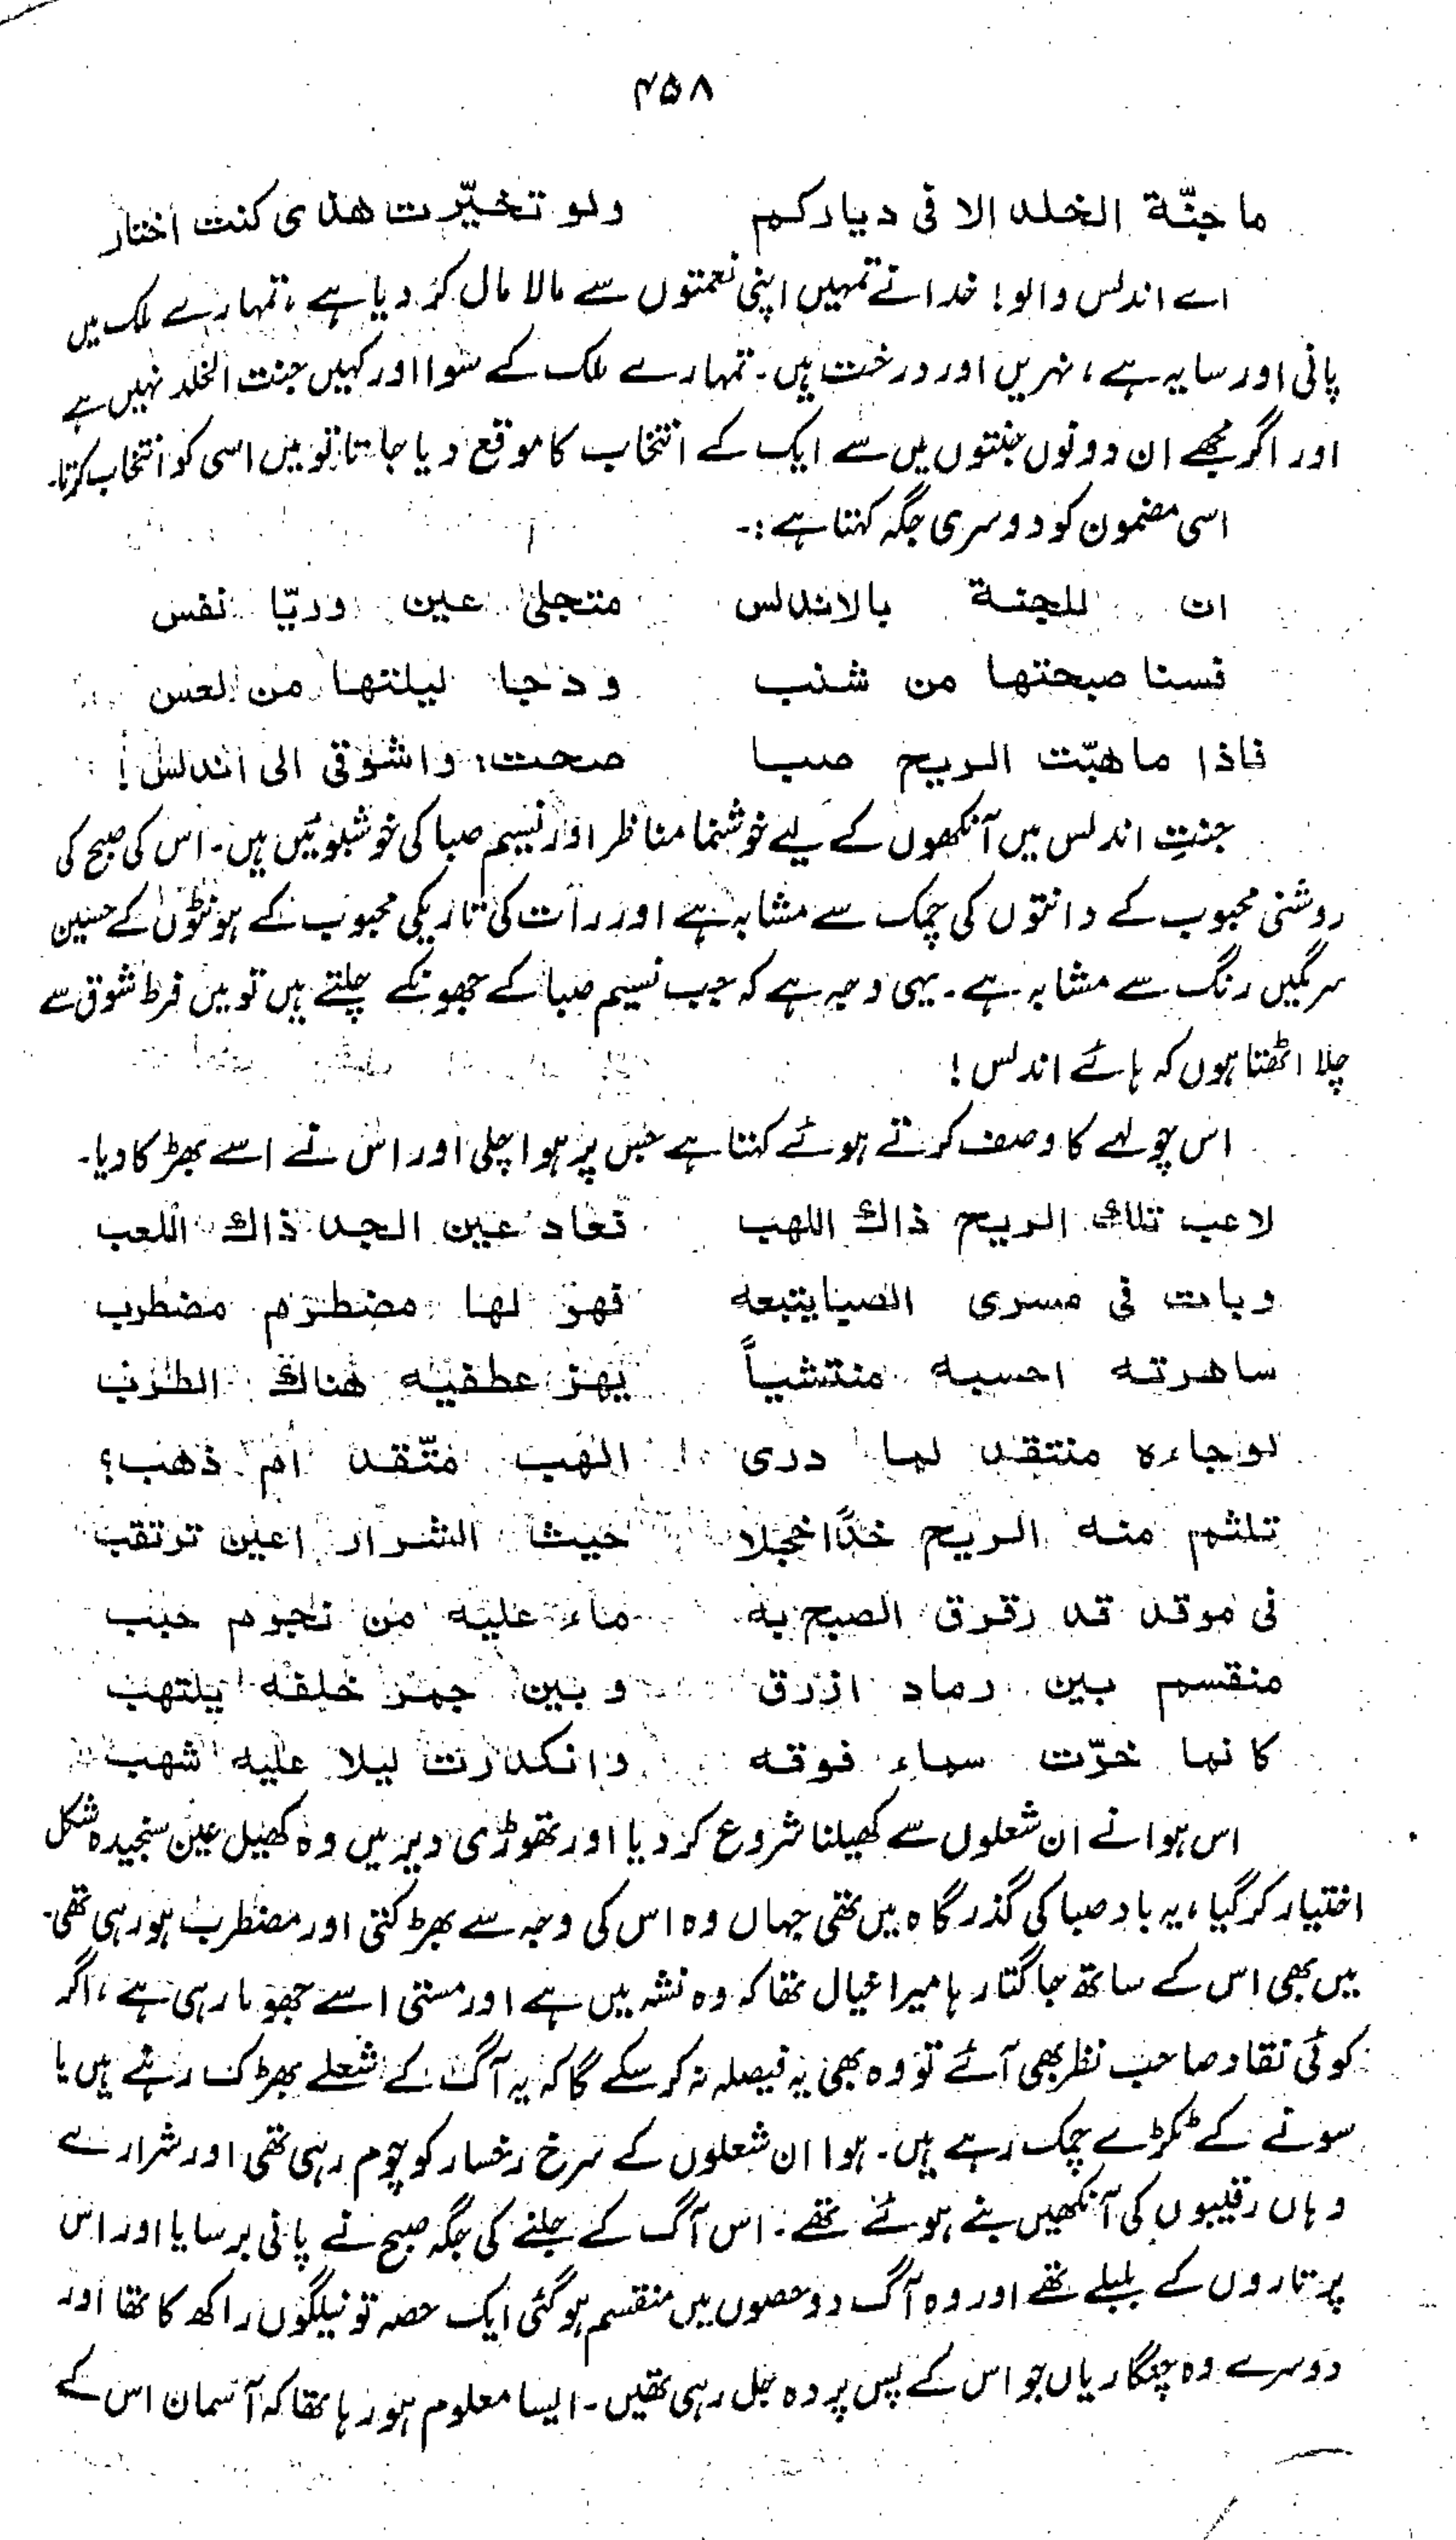 ۴۵۸
ما جنّة الخلد الا فی دیارکم ولو تخیّرت هذی کنت اختار
اے اندلس والو! خدا نے تمہیں اپنی نعمتوں سے مالا مال کر دیا ہے، تمہارے ملک میں
پانی اور سایہ ہے، نہریں اور درخت ہیں۔ تمہارے ملک کے سوا اور کہیں جنت الخلد نہیں ہے
اور اگر مجھے ان دونوں جنتوں میں سے ایک کے انتخاب کا موقع دیا جاتا تو میں اسی کو انتخاب کرتا۔
اسی مضمون کو دوسری جگہ کہتا ہے:۔
ان للجنة بالاندلس متجلی عین وریّا نفس
فسنا صبحتها من شنب ودجا لیلتها من لعس
فاذا ما هبّت الریح صبا صحت: واشوقی الی اندلس!
جنتِ اندلس میں آنکھوں کے لیے خوشنما مناظر اور نسیم صبا کی خوشبوئیں ہیں۔ اس کی صبح کی
روشنی محبوب کے دانتوں کی چمک سے مشابہ ہے اور رات کی تاریکی محبوب کے ہونٹوں کے حسین
سرمگیں رنگ سے مشابہ ہے۔ یہی وجہ ہے کہ جب نسیم صبا کے جھونکے چلتے ہیں تو میں فرط شوق سے
چلا اٹھتا ہوں کہ ہائے اندلس!
اس چولہے کا وصف کرتے ہوئے کہتا ہے جس پر ہوا چلی اور اس نے اسے بھڑکا دیا۔
لاعب تلك الریح ذاك اللهب فعاد عین الجد ذاك اللعب
وبات فی مسری الصبا یتبعه فهو لها مضطرم مضطرب
ساهرته احسبه منتشیاً یهز عطفیه هناك الطرب
لوجاءه منتقد لما دری الهب متّقد ام ذهب؟
تلثم منه الریح خدًّا خجلا حیث الشرار اعین ترتقب
فی موقد قد رقرق الصبح به ماء علیه من نجوم حبب
منقسم بین رماد ازرق وبین جمر خلفه یلتهب
کانما خرّت سماء فوقه وانکدرت لیلا علیه شهب
اس ہوا نے ان شعلوں سے کھیلنا شروع کر دیا اور تھوڑی دیر میں وہ کھیل عین سنجیدہ شکل
اختیار کر گیا، یہ باد صبا کی گذرگاہ میں تھی جہاں وہ اس کی وجہ سے بھڑکتی اور مضطرب ہو رہی تھی۔
میں بھی اس کے ساتھ جاگتا رہا میرا خیال تھا کہ وہ نشہ میں ہے اور مستی اسے جھوما رہی ہے، اگر
کوئی نقاد صاحب نظر بھی آئے تو وہ بھی یہ فیصلہ نہ کر سکے گا کہ یہ آگ کے شعلے بھڑک رہے ہیں یا
سونے کے ٹکڑے چمک رہے ہیں۔ ہوا ان شعلوں کے سرخ رخسار کو چوم رہی تھی اور شرارے
وہاں رقیبوں کی آنکھیں بنے ہوئے تھے۔ اس آگ کے جلنے کی جگہ صبح نے پانی برسایا اور اس
پر تاروں کے بلبلے تھے اور وہ آگ دو حصوں میں منقسم ہو گئی ایک حصہ تو نیلگوں راکھ کا تھا اور
دوسرے وہ چنگاریاں جو اس کے پس پردہ جل رہی تھیں۔ ایسا معلوم ہو رہا تھا کہ آسمان اس کے